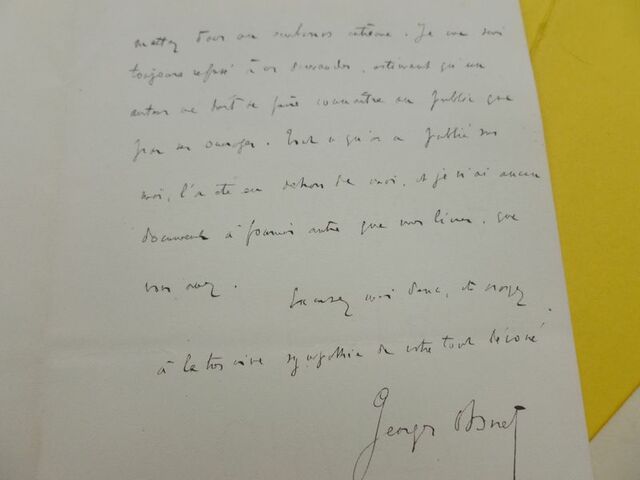 mettez dans un embarras extrême. Je me suis
toujours refusé à ces demandes, estimant qu'un
auteur ne doit se faire connaître au public que
par ses ouvrages. Tout ce qu'on a publié sur
moi, l'a été en dehors de moi, et je n'ai aucun
document à fournir autre que mes livres, que
vous avez.
Excusez moi donc, et croyez
à la très vive sympathie de votre tout dévoué
Georges Ohnet